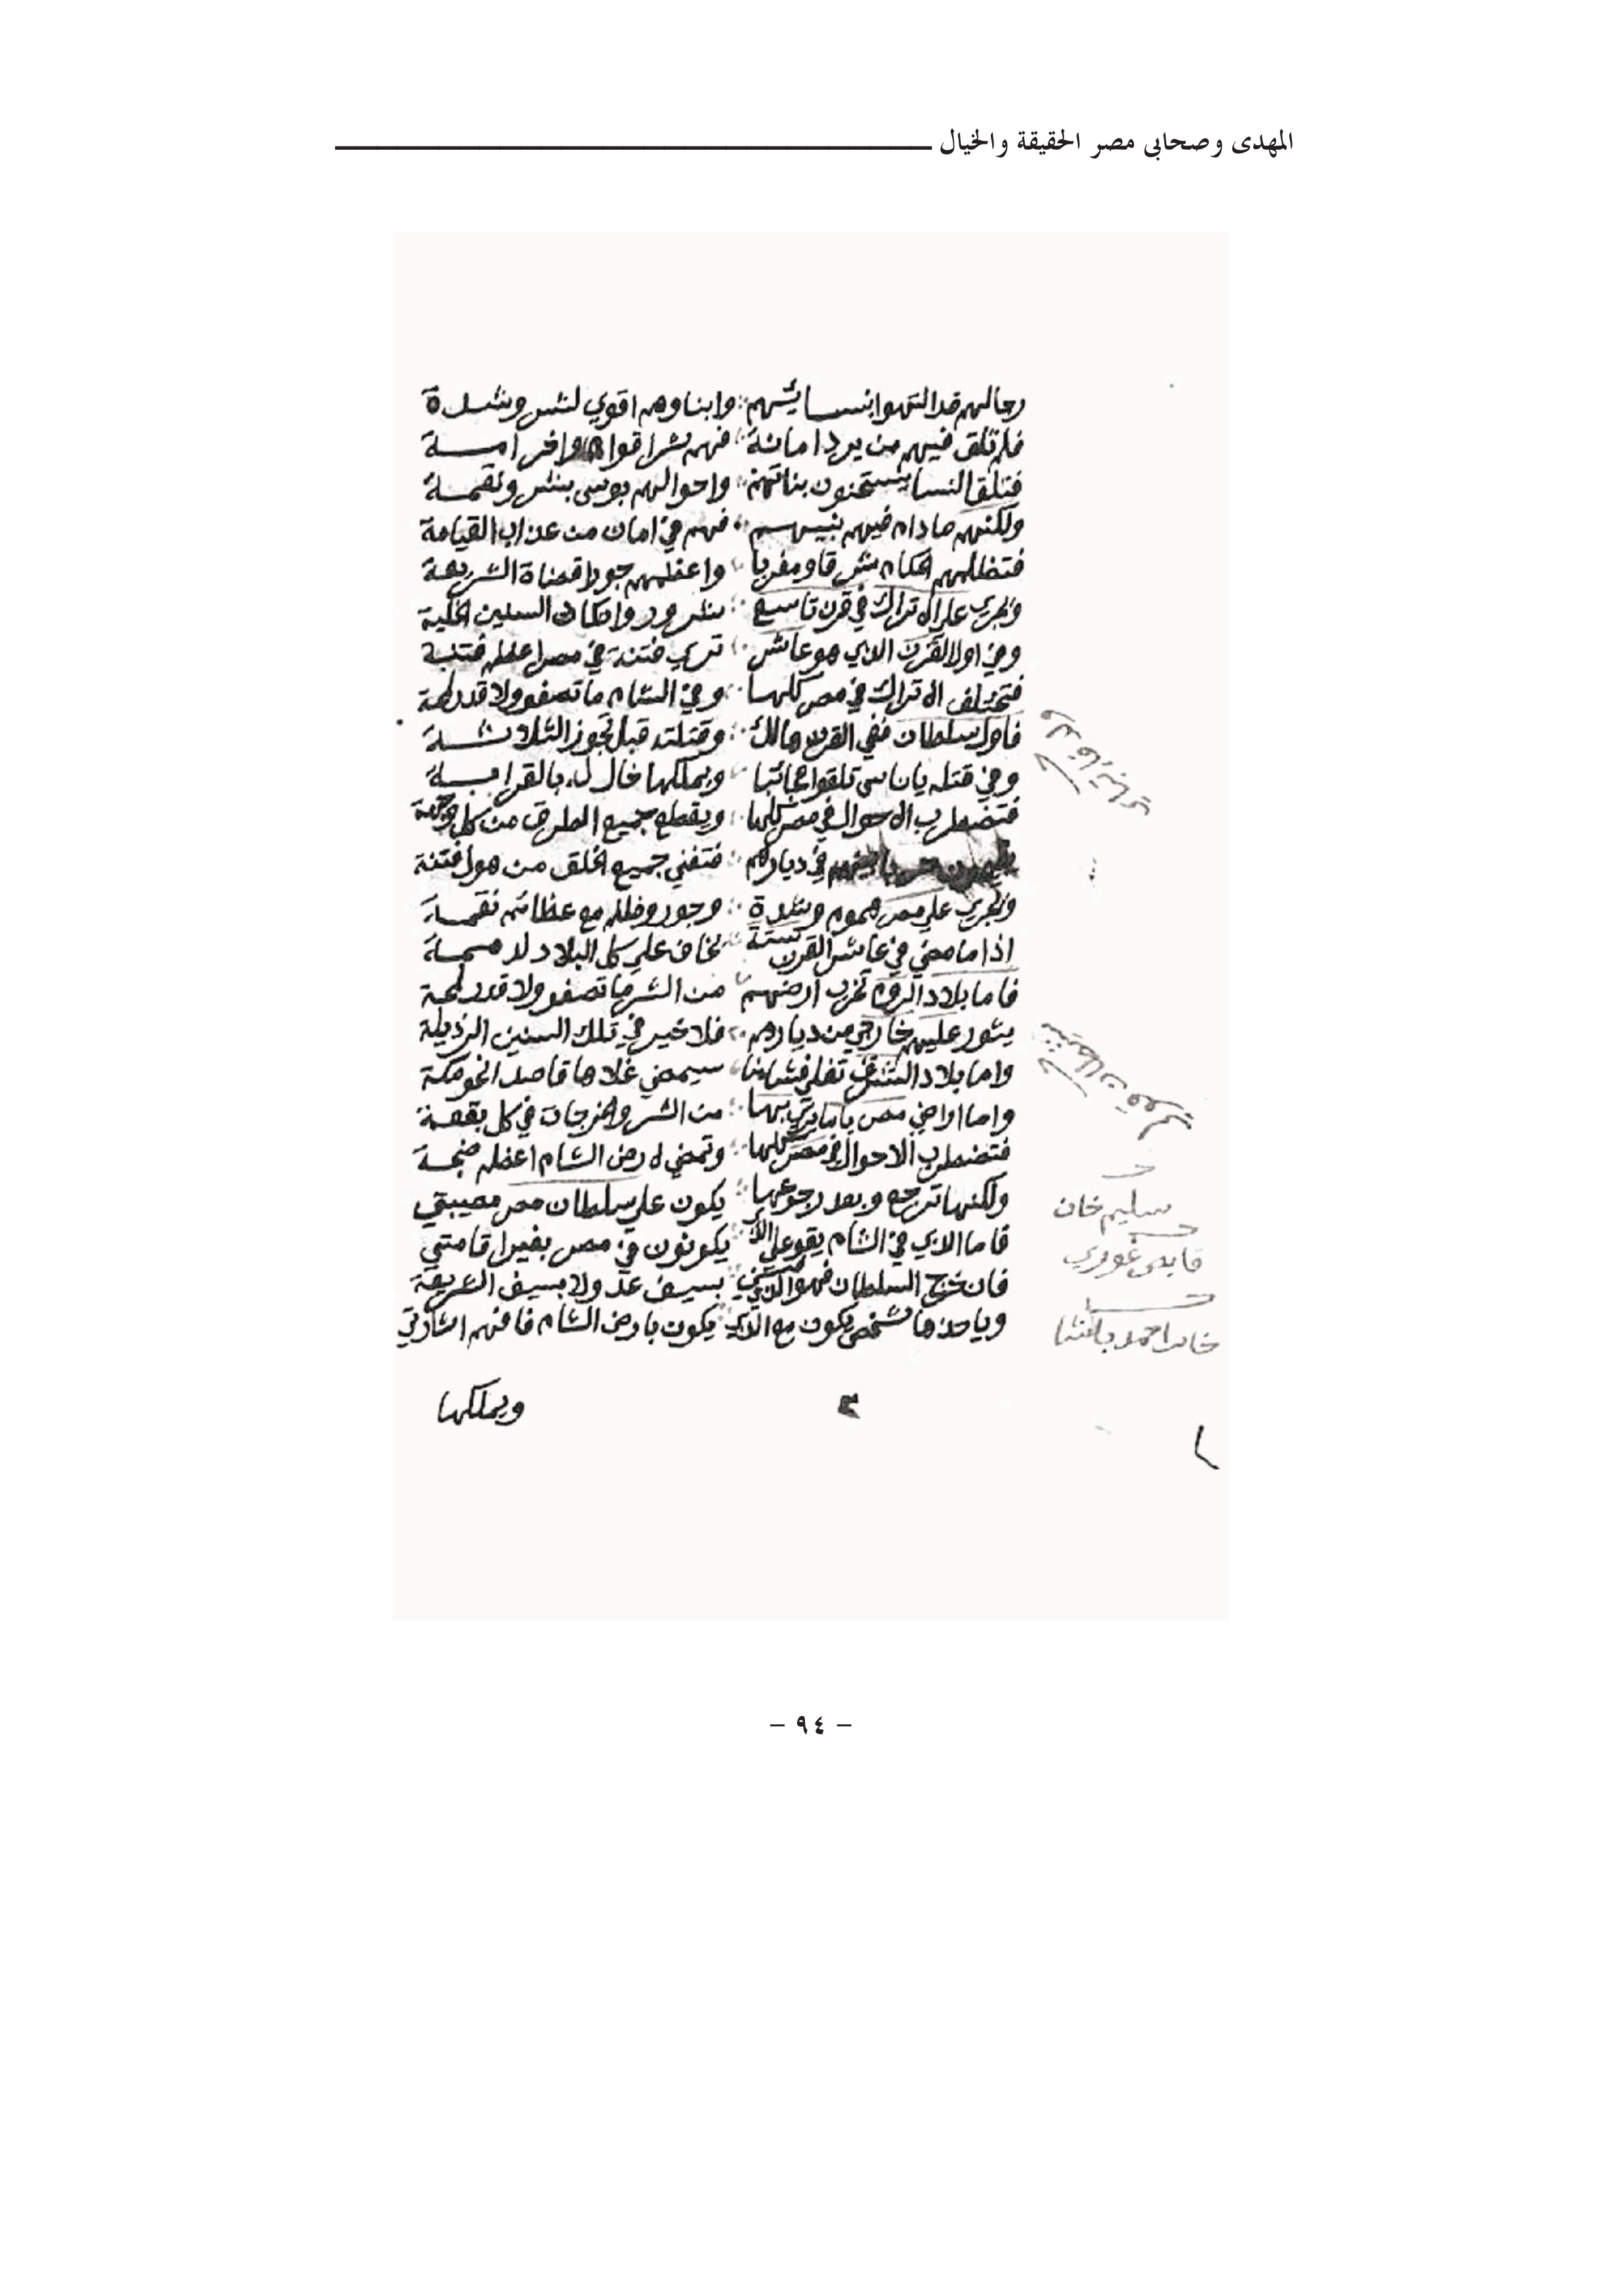 المهدى وصحابى مصر الحقيقة والخيال
رجالهم قد التهوا بنسائهم وابناوهم اقوي لشر وشدة
فلم تلق فيهم من يرد امانة فهم شر اقوام وافر امة
فتلق النسا يستحنون بناتهن واحوالهم بوس بشر ونقمة
ولكنهم مادام فيهم نبيهم فهم في امان من عذاب القيامة
فتظلمهم الحكام شرقا ومغربا واعظمهم جورا قضاة الشريعة
وتجري على الاتراك في قرن تاسع شرور واحكام السنين الخلية
وفي اول القرن الذي هو عاشر تري فتنة في مصر اعظم فتنة
فتختلف الاتراك في مصر كلها وفي الشام ما تصفو ولا قدر لمحة
فاول سلطان ففي القرن هالك وقتلته قبل تجوز الثلاثة
وفي قتله ياناس تلقوا عجائبا ويملكها خال له بالقرابة
فتضطرب الاحوال في مصر كلها ويقطع جميع الطرق من كل وجهة
في ديارهم فتفني جميع الخلق من هول فتنة
وتجري على مصر هموم وشدة وجور وظلم مع عظائم نقمة
اذا ما مضي في عاشر القرن ستة تخاف على كل البلاد
فاما بلاد الروم تخرب ارضهم من الشر ما تصفو ولا قدر لمحة
يثور عليهم خارجي من ديارهم فلا خير في تلك السنين الرذيلة
واما بلاد الشرق تغلي سيمضي غلاها قاصد
واما اراضي مصر يا ما يري بها من الشر والخرجات في كل بقعة
فتضطرب الاحوال في مصر كلها وتمضي لارض الشام اعظم ضجة
ولكنها ترجع وبعد رجوعها يكون على سلطان مصر مصيبتي
فاما الذي في الشام يقو على يكونون في مصر بغير اقامتي
فان خرج السلطان فهو بسيف عد ولا بسيف الشريعة
وياخذها شخص يكون مع الذي يكون بارض الشام فافهم اشارتي
سليم خان
قايدى غوري
خاير احمد باشا
ويملكها
٢
– ٩٤ –